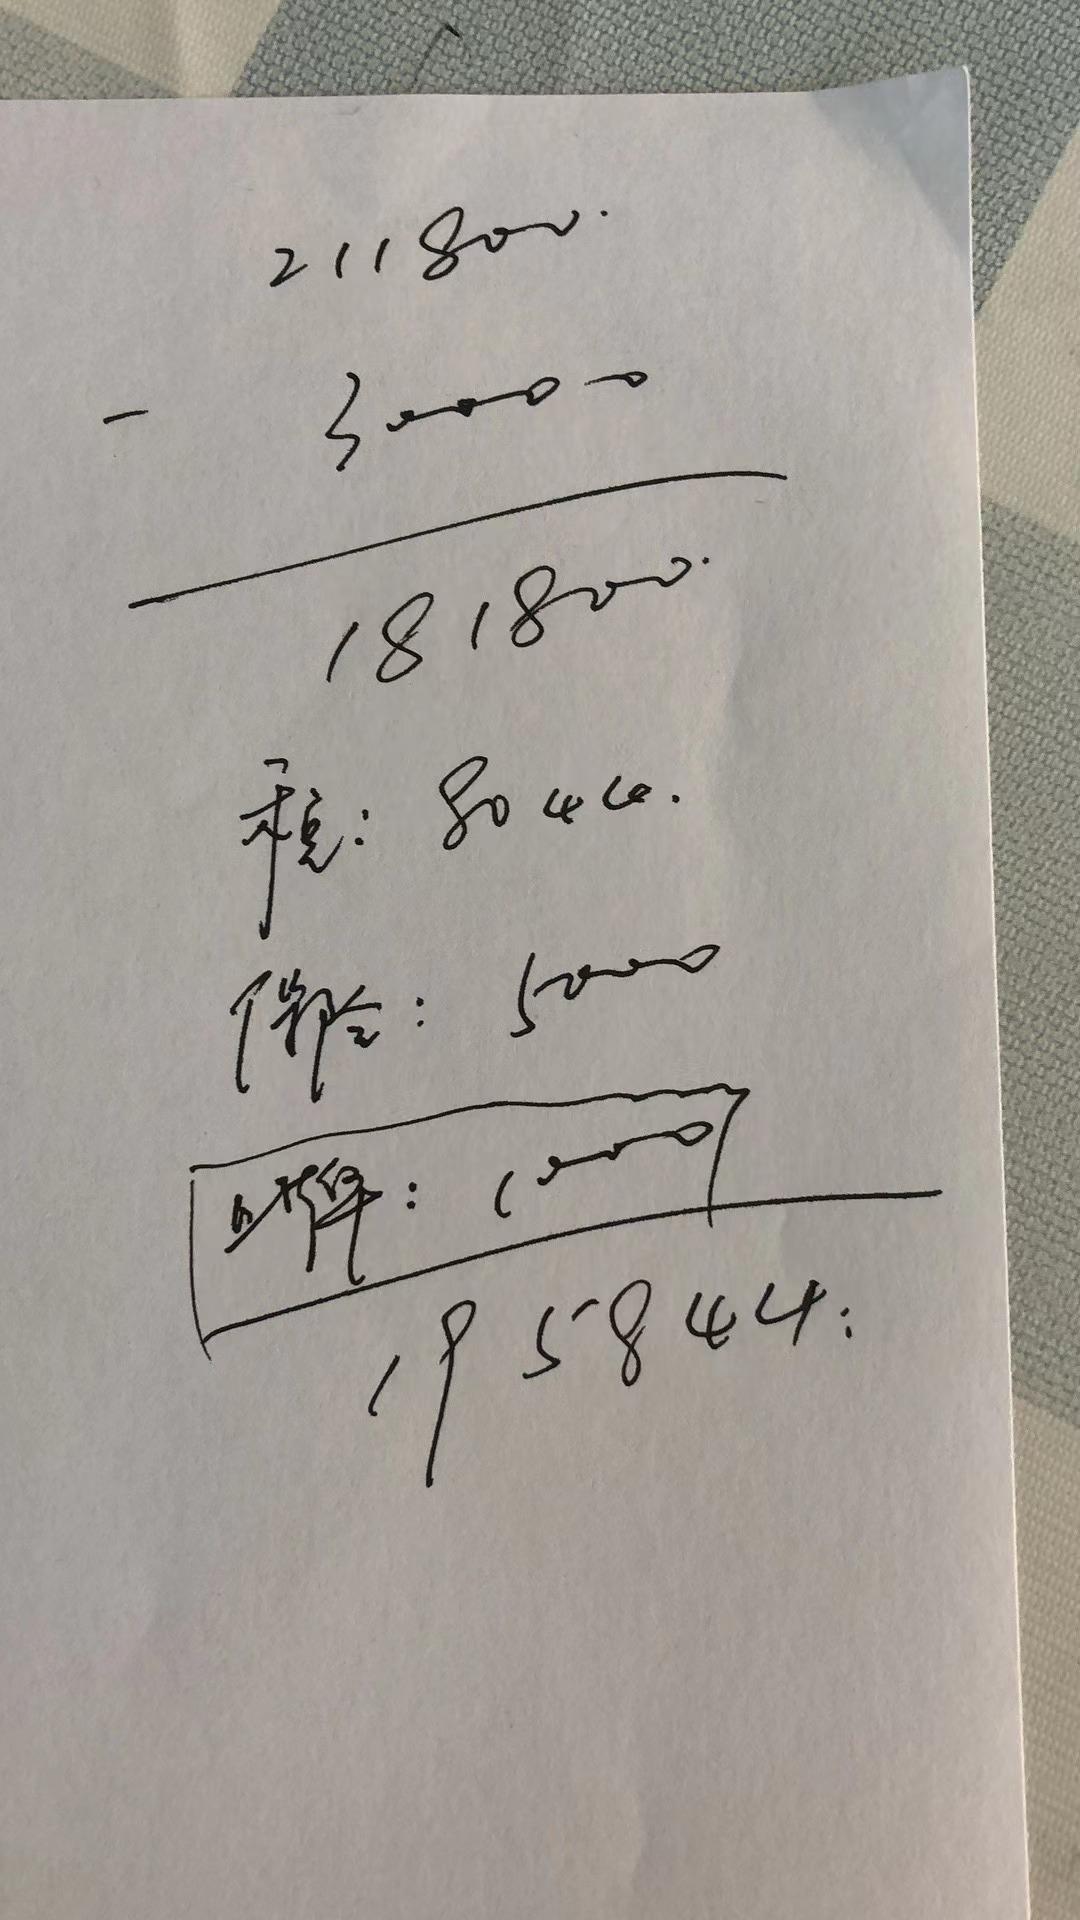 211800.
- 30000
181800.
税: 8044.
保险: 5000
上牌: 1000
195844.